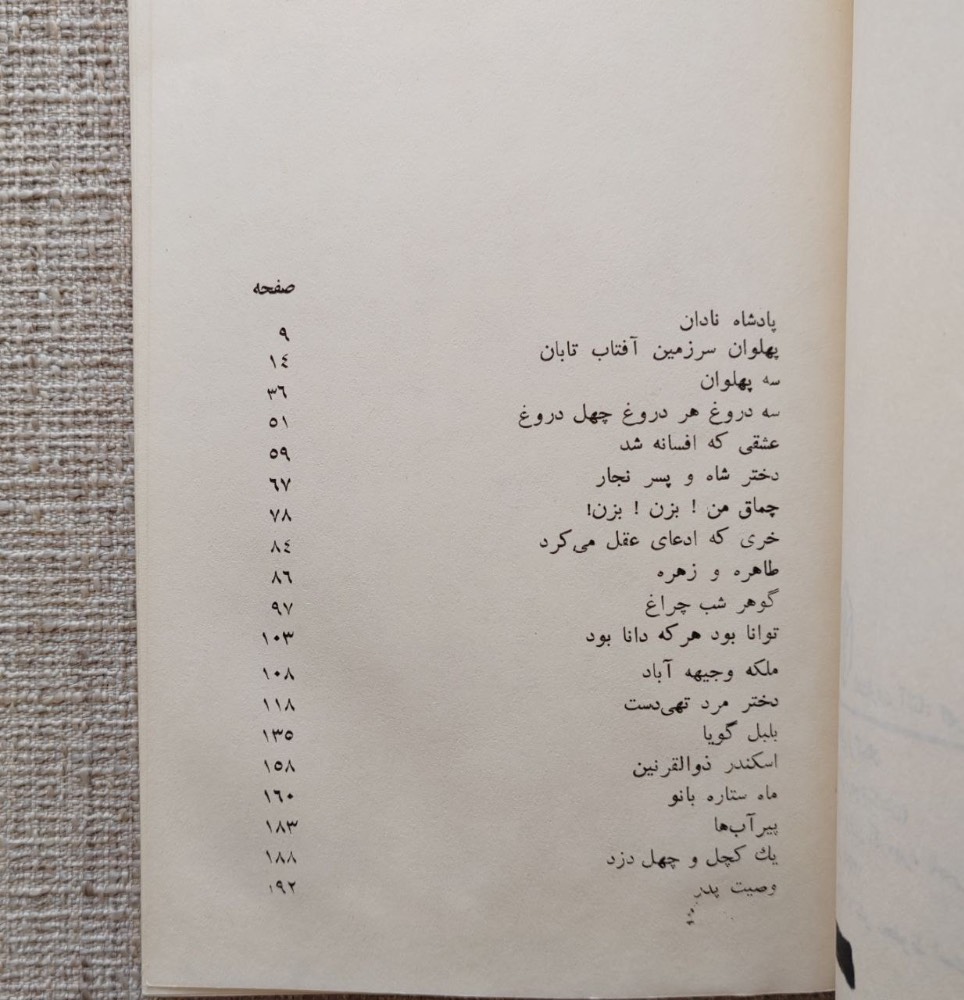 صفحه
پادشاه نادان ۹
پهلوان سرزمین آفتاب تابان ۱٤
سه پهلوان ۳٦
سه دروغ هر دروغ چهل دروغ ٥۱
عشقی که افسانه شد ٥۹
دختر شاه و پسر نجار ٦۷
چماق من ! بزن ! بزن! ۷۸
خری که ادعای عقل می‌کرد ۸٤
طاهره و زهره ۸٦
گوهر شب چراغ ۹۷
توانا بود هرکه دانا بود ۱۰۳
ملکه وجیهه آباد ۱۰۸
دختر مرد تهی‌دست ۱۱۸
بلبل گویا ۱۳٥
اسکندر ذوالقرنین ۱٥۸
ماه ستاره بانو ۱٦۰
پیرآب‌ها ۱۸۳
يك کچل و چهل دزد ۱۸۸
وصیت پدر ۱۹۲